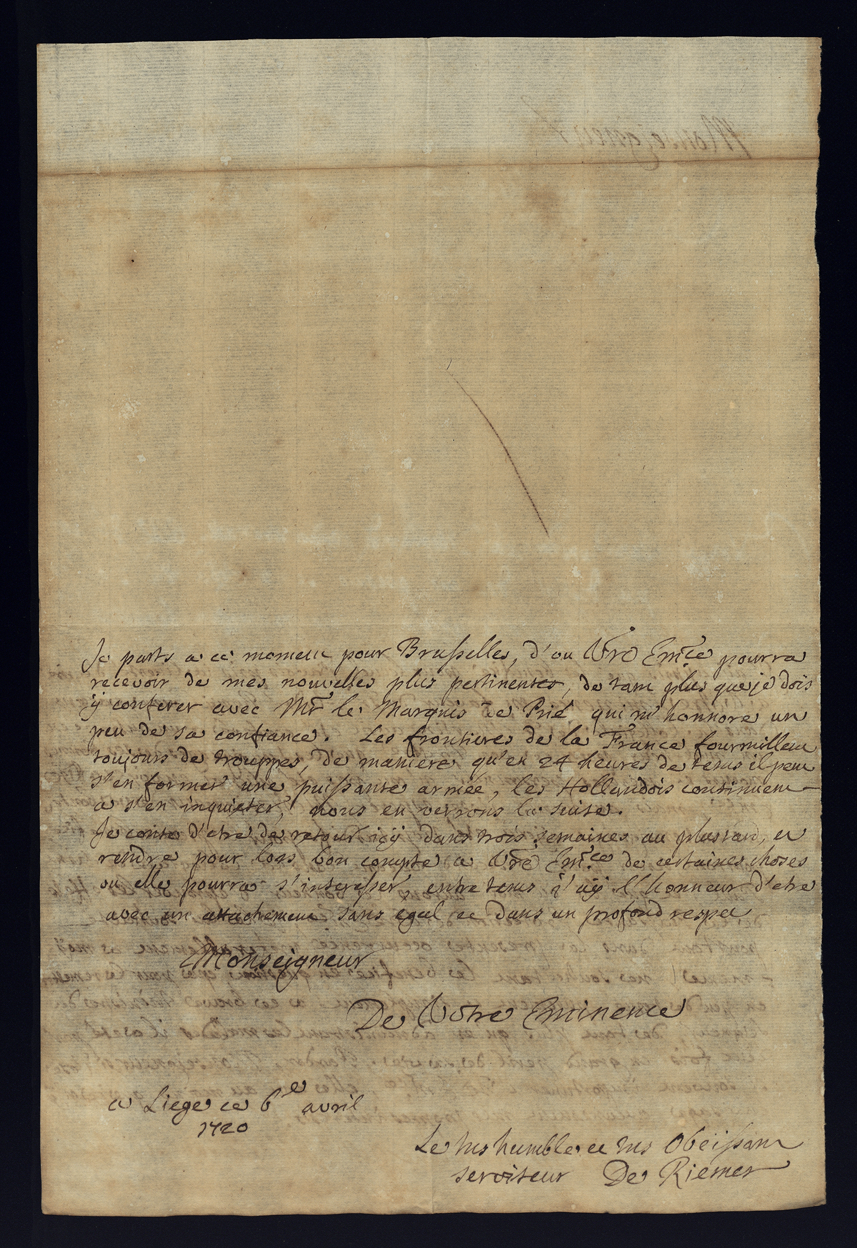 Je parts a ce moment pour Brusselles, d'ou Vre Emce pourra
recevoir de mes nouvelles plus pertinentes, de tant plus que je dois
y conferer avec Mr le Marquis de Prié, qui m'honnore un
peu de sa confiance. Les frontieres de la France fourmillent
toujours de trouppes, de maniere qu'en 24 heures de tems il peut
s'en former une puissante armée, les Hollandois continuent
a s'en inquieter, nous en verrons la suite.
Je conte d'etre de retour icy dans trois semaines au plustard, et
rendre pour lors bon compte a Vre Emce de certaines choses
ou elle pourra s'interesser, entre tems j'ay l'honneur d'etre
avec un attachement sans egal et dans un profond respect
Monseigneur
De Votre Eminence
a Liege ce 6e avril
1720
Le tres humble et tres Obeissant
serviteur De Riemer